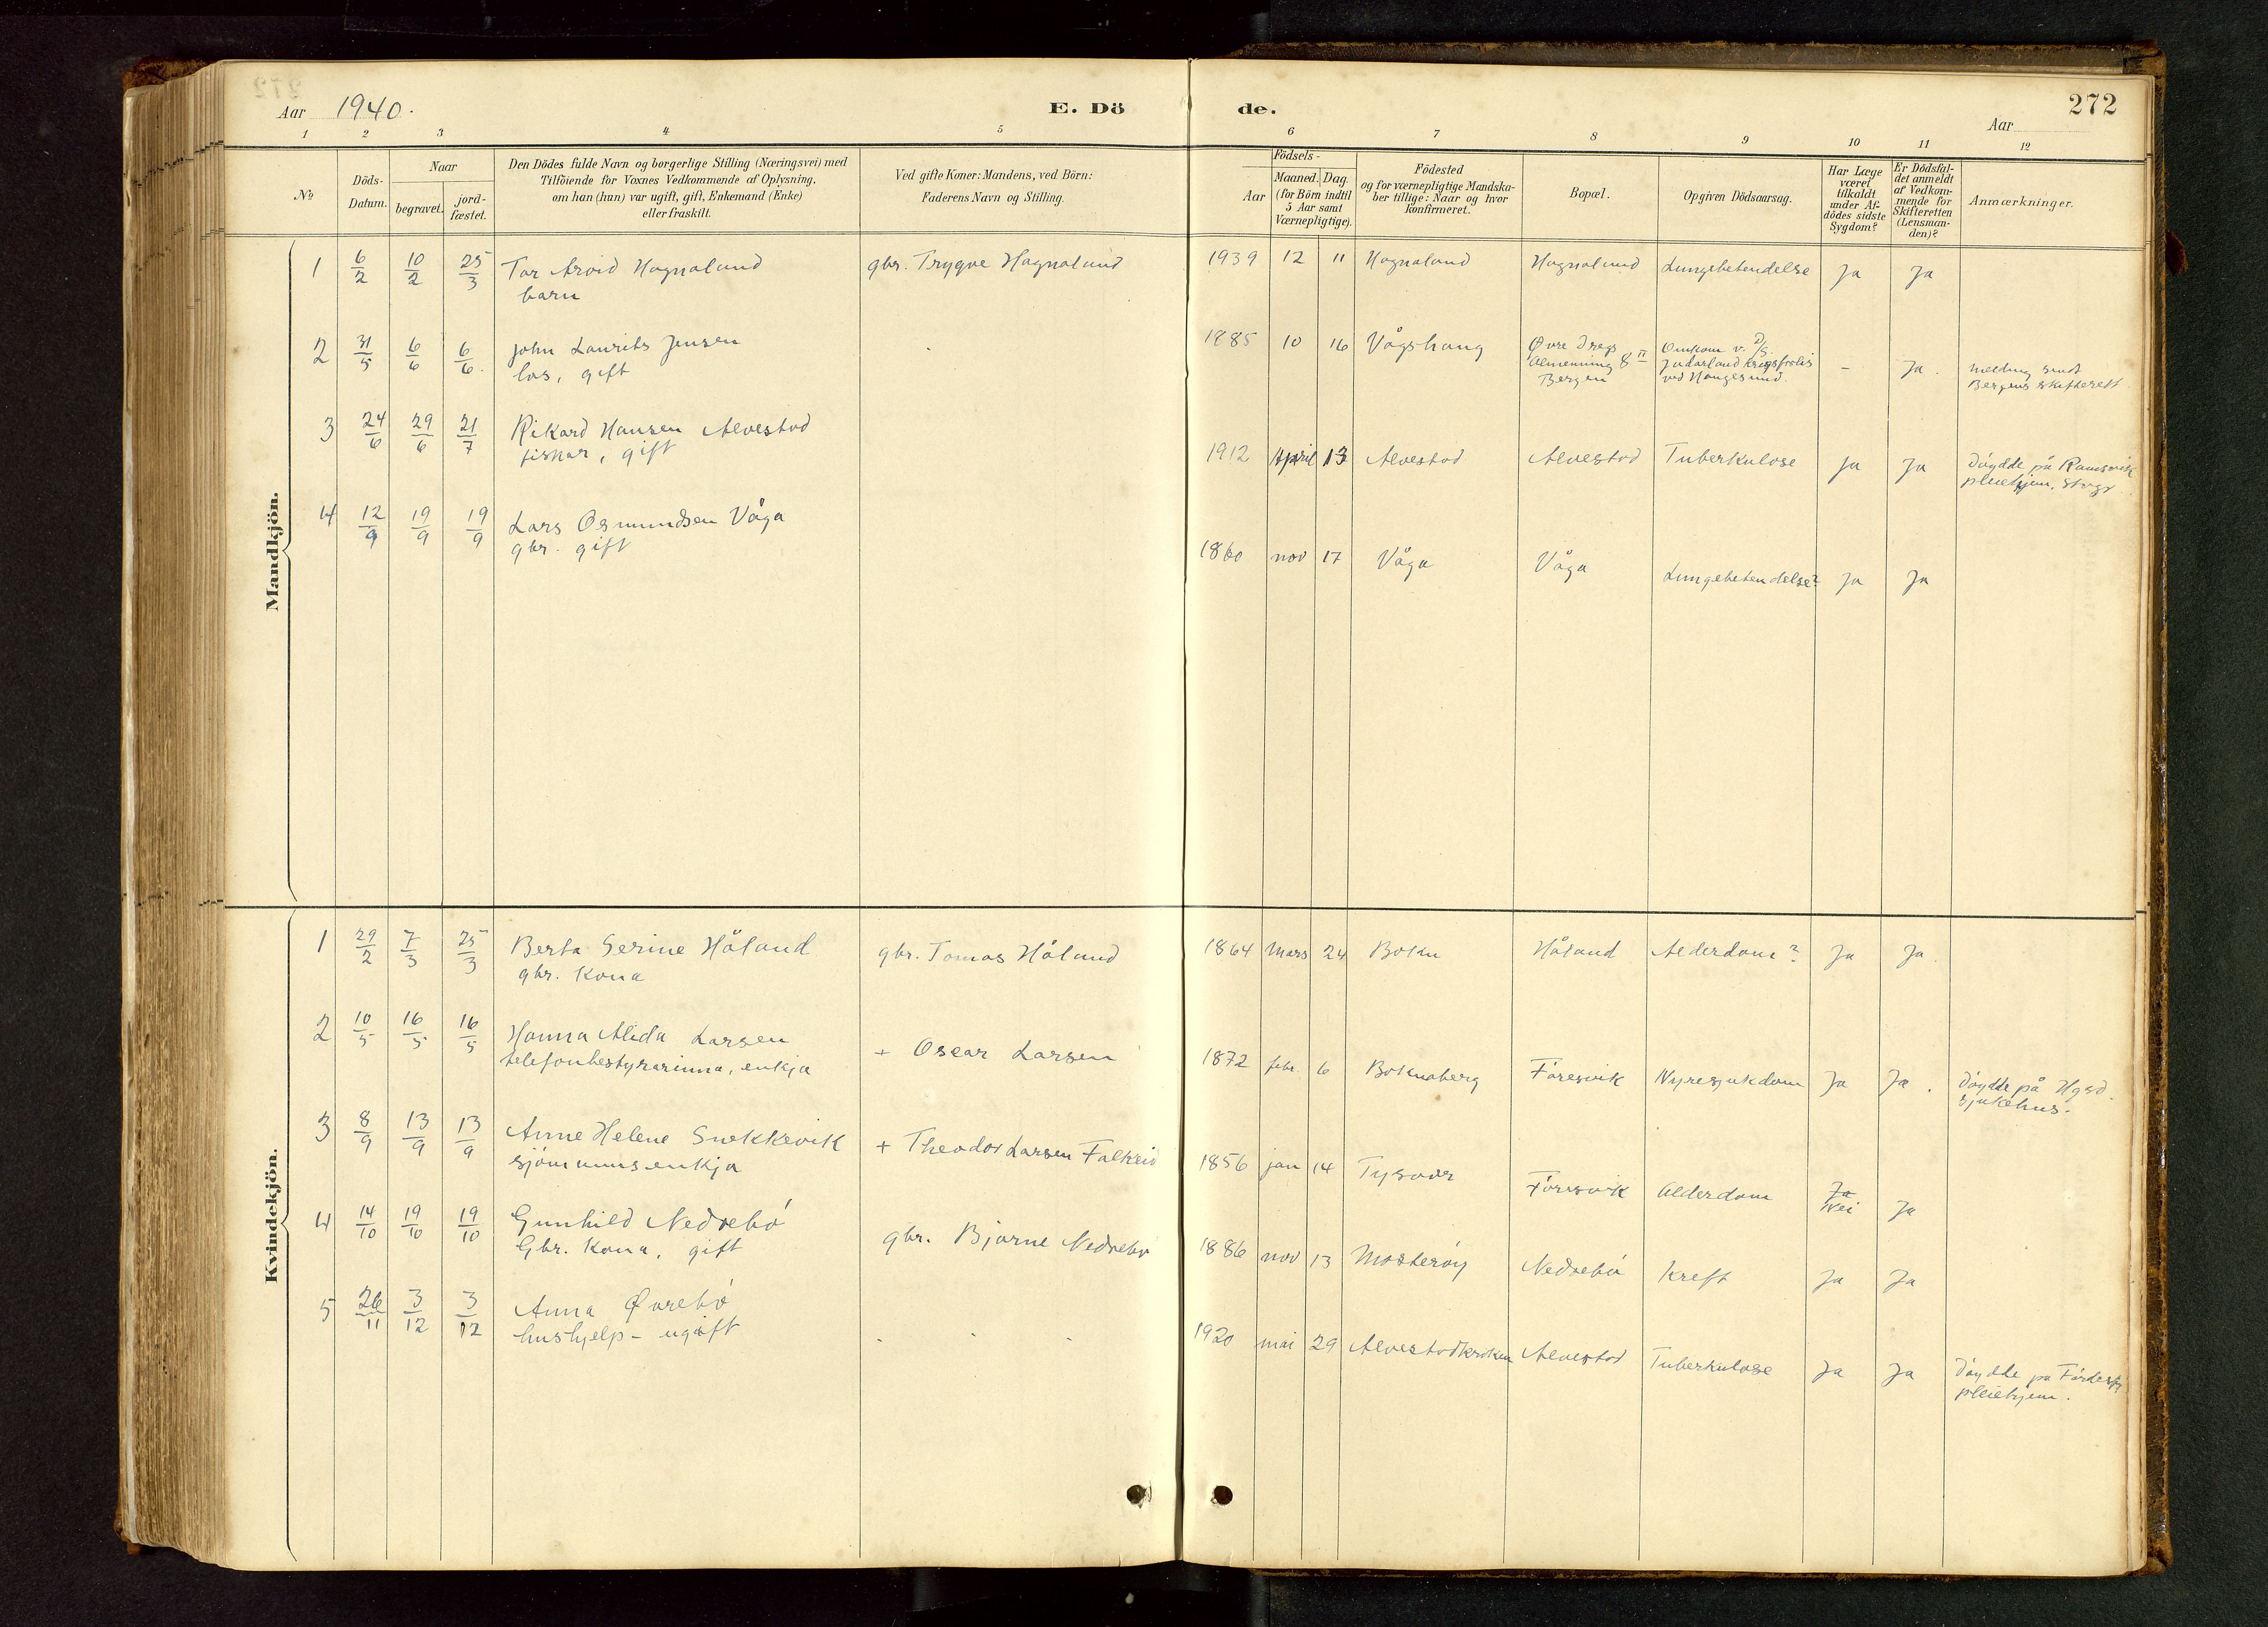 272
Aar 1940.
E. Dö de.
Aar
1 2 3 4 5 6 7 8 9 10 11 12
No
Döds-
Datum.
Naar
begravet.
jord-
fæstet.
Den Dödes fulde Navn og borgerlige Stilling (Næringsvei) med
Tilföiende for Voxnes Vedkommende af Oplysning,
om han (hun) var ugift, gift, Enkemand (Enke)
eller fraskilt.
Ved gifte Koner: Mandens, ved Börn:
Faderens Navn og Stilling.
Födsels-
Aar
Maaned. Dag.
(for Börn indtil
5 Aar samt
Værnepligtige).
Födested
og for værnepligtige Mandska-
ber tillige: Naar og hvor
konfirmeret.
Bopæl.
Opgiven Dödsaarsag.
Har Læge
været
tilkaldt
under Af-
dödes sidste
Sygdom?
Er Dödsfal-
det anmeldt
af Vedkom-
mende for
Skifteretten
(Lensman-
den)?
Anmærkninger.
Mandkjön.
1 6/2 10/2 25/3 Tor Arvid Hognaland gbr. Trygve Hognaland 1939 12 11 Hognaland Hognaland Lungebetendelse Ja Ja
barn
2 31/5 6/6 6/6. John Laurits Jensen 1885 10 16 Vågshaug Øvre Dregs Omkom v. D/S - Ja. melding sendt
los, gift Almenning 8 II Jadarland krigsforlis Bergens skifterett
Bergen ved Haugesund.
3 24/6 29/6 21/7 Rikard Hansen Alvestad 1912 April 13 Alvestad Alvestad Tuberkulose Ja Ja Döydde på Ramsvik
fiskar, gift pleiehjem,
4 12/9 19/9 19/9 Lars Osmundsen Våga 1860 nov 17 Våga Våga Lungebetendelse? Ja Ja
gbr. gift
Kvindekjön.
1 29/2 7/3 25/3 Berta Serine Håland gbr. Tomas Håland 1864 Mars 24 Bokn Håland Alderdom? Ja Ja
gbr. Kona
2 10/5 16/5 16/5 Hanna Alida Larsen + Oscar Larsen 1872 febr. 6 Boknaberg Föresvik Nyresjukdom Ja Ja. Döydde på Hgsd.
telefonbestyrarinna, enkja sjukehus.
3 8/9 13/9 13/9 Anne Helene Snekkevik + Theodor Larsen Falkeid 1856 jan 14 Tysvær Föresvik Alderdom Ja Ja
sjömannsenkja Nei
4 14/10 19/10 19/10 Gunhild Nedrebö gbr. Bjarne Nedrebö 1886 nov 13 Mosteröy Nedrebö Kreft Ja Ja
Gbr. Kona, gift
5 26/11 3/12 3/12 Anna Øvrebö - - - 1920 mai 29 Alvestadkroken Alvestad Tuberkulose Ja Ja Döydde på
hushjelp - ugift pleiehjem.